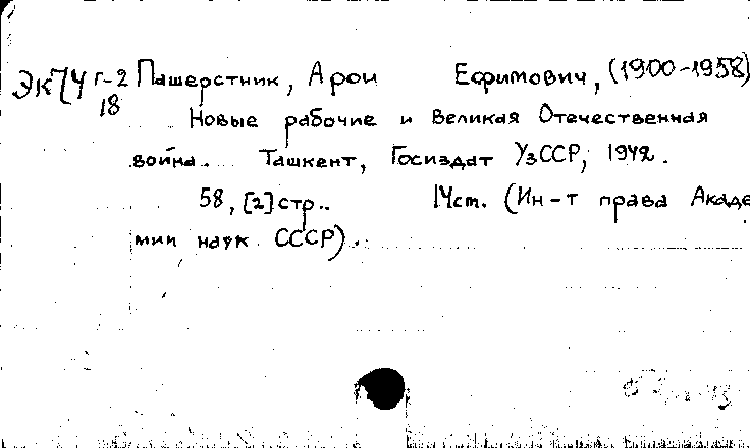 Эк74 Г-2 Пашерстник, Арон Ефимович, (1900-1958)
18
Новые рабочие и Великая Отечественная
война. Ташкент, Госиздат УзССР, 1942.
58, [2] стр. 14 см. (Ин-т права Акаде
мии наук СССР).